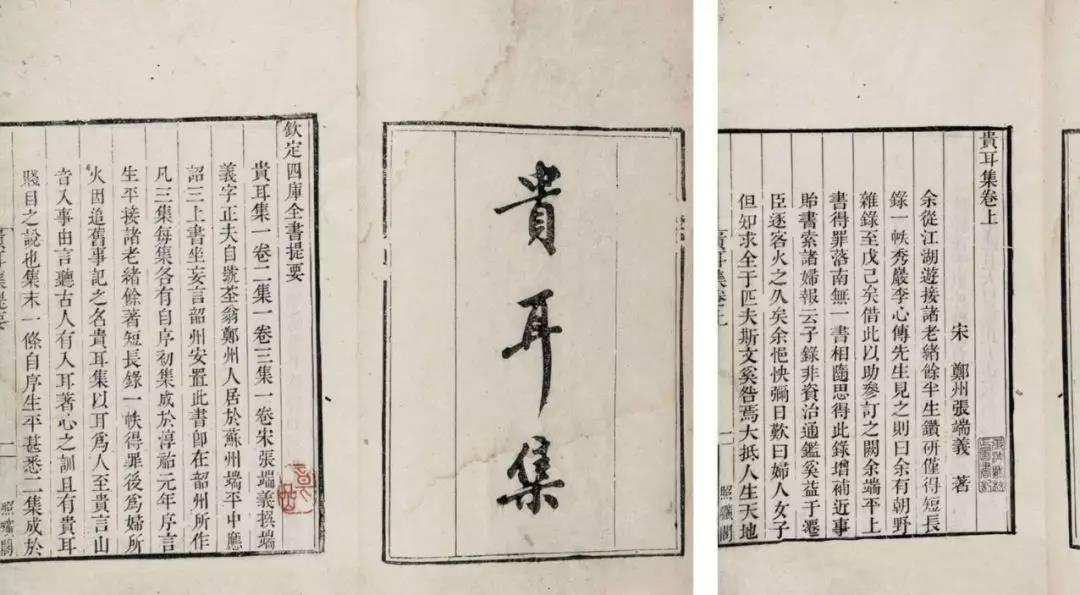 貴耳集
欽定四庫全書提要
貴耳集一卷二集一卷三集一卷宋張端義撰端
義字正夫自號荃翁鄭州人居於蘇州端平中應
詔三上書坐妄言韶州安置此書卽在韶州所作
凡三集每集各有自序初集成於淳祐元年序言
生平接諸老緒餘著短長錄一帙得罪後爲婦所
火因追舊事記之名貴耳集以耳爲人至貴言由
音入事由言聽古人有入耳著心之訓且有貴耳
賤目之說也集末一條自序生平甚悉二集成於
貴耳集提要 一 照曠閣
貴耳集卷上
宋 鄭州張端義 著
余從江湖遊接諸老緒餘半生鑽研僅得短長
錄一帙秀巖李心傳先生見之則曰余有朝野
雜錄至戊己矣借此以助參訂之闕余端平上
書得罪落南無一書相隨思得此錄增補近事
貽書索諸婦報云子錄非資治通鑑奚益于遷
臣逐客火之久矣余悒怏彌日歎曰婦人女子
但知求全于匹夫斯文奚咎焉大抵人生天地
貴耳集卷上 一 照曠閣